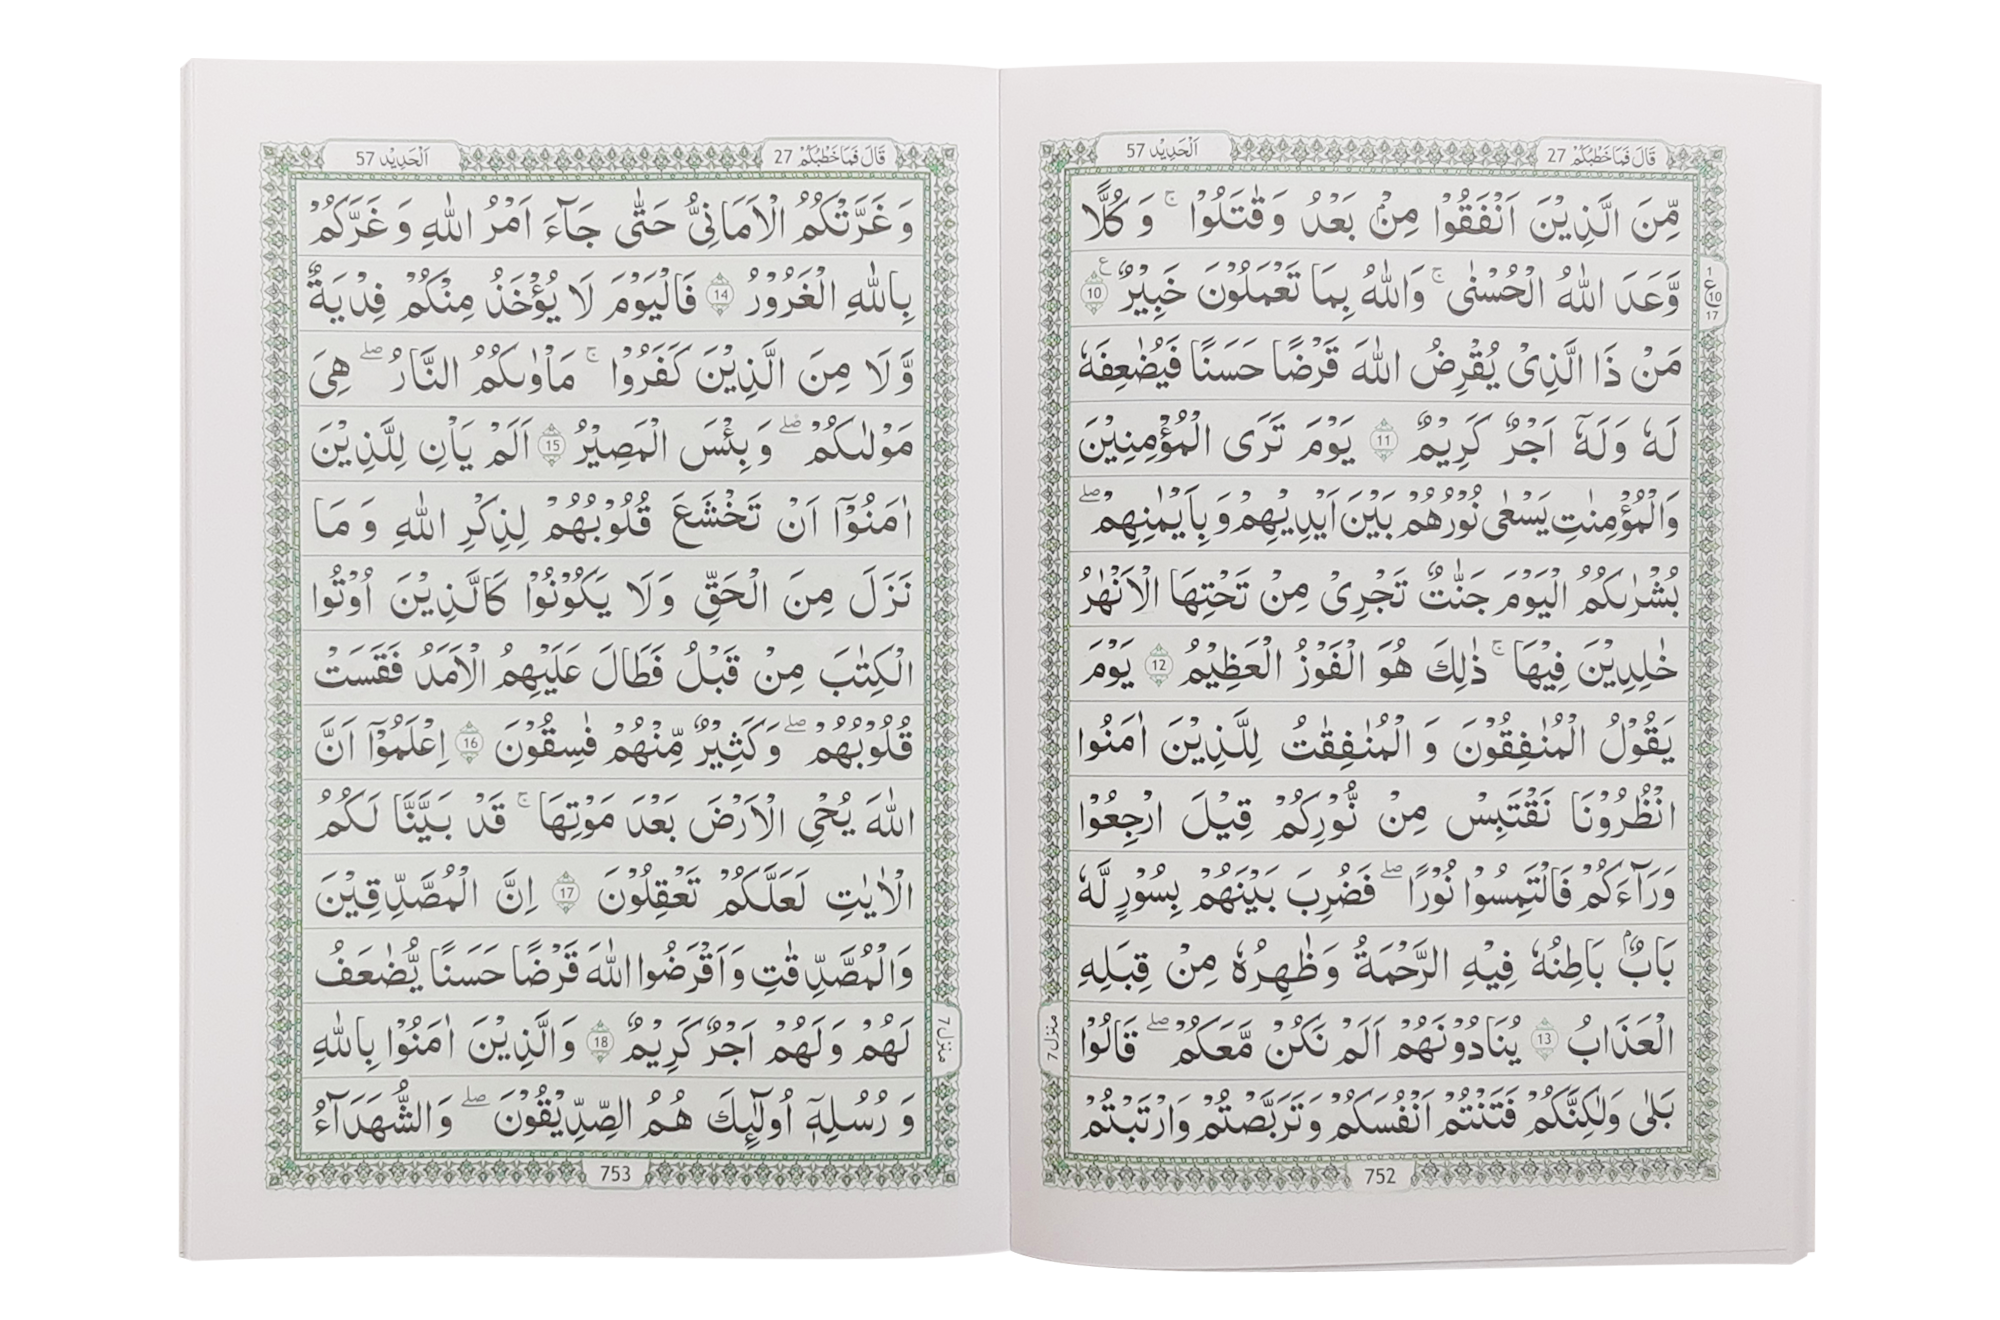 قَالَ فَمَا خَطْبُكُمْ 27
اَلْحَدِيْد 57
مِّنَ الَّذِيْنَ اَنْفَقُوْا مِنْۢ بَعْدُ وَقٰتَلُوْا ۚ وَ كُلًّا
وَّعَدَ اللّٰهُ الْحُسْنٰى ۚ وَاللّٰهُ بِمَا تَعْمَلُوْنَ خَبِيْرٌ ࣖ 10
مَنْ ذَا الَّذِىْ يُقْرِضُ اللّٰهَ قَرْضًا حَسَنًا فَيُضٰعِفَهٗ
لَهٗ وَلَهٗۤ اَجْرٌ كَرِيْمٌ 11 يَوْمَ تَرَى الْمُؤْمِنِيْنَ
وَالْمُؤْمِنٰتِ يَسْعٰى نُوْرُهُمْ بَيْنَ اَيْدِيْهِمْ وَ بِاَيْمٰنِهِمْ ۖ
بُشْرٰىكُمُ الْيَوْمَ جَنّٰتٌ تَجْرِىْ مِنْ تَحْتِهَا الْاَنْهٰرُ
خٰلِدِيْنَ فِيْهَا ۚ ذٰلِكَ هُوَ الْفَوْزُ الْعَظِيْمُ 12 يَوْمَ
يَقُوْلُ الْمُنٰفِقُوْنَ وَ الْمُنٰفِقٰتُ لِلَّذِيْنَ اٰمَنُوا
انْظُرُوْنَا نَقْتَبِسْ مِنْ نُّوْرِكُمْ قِيْلَ ارْجِعُوْا
وَرَآءَكُمْ فَالْتَمِسُوْا نُوْرًا ۖ فَضُرِبَ بَيْنَهُمْ بِسُوْرٍ لَّهٗ
بَابٌۢ بَاطِنُهٗ فِيْهِ الرَّحْمَةُ وَظٰهِرُهٗ مِنْ قِبَلِهِ
الْعَذَابُ 13 يُنَادُوْنَهُمْ اَلَمْ نَكُنْ مَّعَكُمْ ۖ قَالُوْا
بَلٰى وَلٰكِنَّكُمْ فَتَنْتُمْ اَنْفُسَكُمْ وَ تَرَبَّصْتُمْ وَارْتَبْتُمْ
1
ع
10
17
منزل 7
752
قَالَ فَمَا خَطْبُكُمْ 27
اَلْحَدِيْد 57
وَ غَرَّتْكُمُ الْاَمَانِىُّ حَتّٰى جَآءَ اَمْرُ اللّٰهِ وَ غَرَّكُمْ
بِاللّٰهِ الْغَرُوْرُ 14 فَالْيَوْمَ لَا يُؤْخَذُ مِنْكُمْ فِدْيَةٌ
وَّلَا مِنَ الَّذِيْنَ كَفَرُوْا ۚ مَاْوٰىكُمُ النَّارُ ۖ هِىَ
مَوْلٰىكُمْ ۖ وَ بِئْسَ الْمَصِيْرُ 15 اَلَمْ يَاْنِ لِلَّذِيْنَ
اٰمَنُوْۤا اَنْ تَخْشَعَ قُلُوْبُهُمْ لِذِكْرِ اللّٰهِ وَ مَا
نَزَلَ مِنَ الْحَقِّ وَلَا يَكُوْنُوْا كَالَّذِيْنَ اُوْتُوا
الْكِتٰبَ مِنْ قَبْلُ فَطَالَ عَلَيْهِمُ الْاَمَدُ فَقَسَتْ
قُلُوْبُهُمْ ۖ وَكَثِيْرٌ مِّنْهُمْ فٰسِقُوْنَ 16 اِعْلَمُوْۤا اَنَّ
اللّٰهَ يُحْىِ الْاَرْضَ بَعْدَ مَوْتِهَا ۚ قَدْ بَيَّنَّا لَكُمُ
الْاٰيٰتِ لَعَلَّكُمْ تَعْقِلُوْنَ 17 اِنَّ الْمُصَّدِّقِيْنَ
وَالْمُصَّدِّقٰتِ وَاَقْرَضُوا اللّٰهَ قَرْضًا حَسَنًا يُّضٰعَفُ
لَهُمْ وَلَهُمْ اَجْرٌ كَرِيْمٌ 18 وَالَّذِيْنَ اٰمَنُوْا بِاللّٰهِ
وَ رُسُلِهٖۤ اُولٰٓئِكَ هُمُ الصِّدِّيْقُوْنَ ۖ وَالشُّهَدَآءُ
منزل 7
753